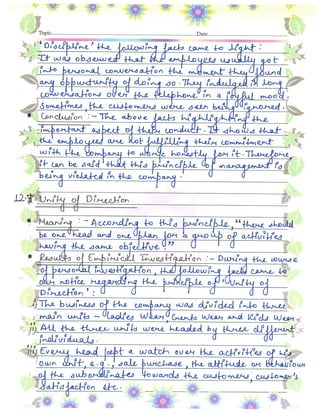 Topic Date
'Discipline' the following facts came to light :
It was observed that the employees usually got
into personal conversation the moment they found
any oppurtunity of doing so. They indulged in long
conversations over the telephone in a joyful mood.
Sometimes, the customers were seen being ignored.
Conclusion :- The above facts highlighting the
important aspect of their conduct. It shows that
the employees are not fulfilling their commitment
with the company to work honestly for it. Therefore,
it can be said that this principle of management is
being violated in the company.
Unity of Direction
• Meaning :- According to this principle, "there should
be one head and one plan for a group of activities
having the same objective."
• Results of Empirical Investigation :- During the course
of personal investigation, the following facts came to
our notice regarding the principle of 'Unity of
Direction' :
i) The business of the company was divided into three
main units - Ladies Wear, Gents Wear and Kids Wear.
ii) All the three units were headed by three different
individuals.
iii) Every head kept a watch over the activities of his
own unit, e.g., sale purchase, the attitude or behaviour
of the subordinates towards the customers, customer's
satisfaction etc.